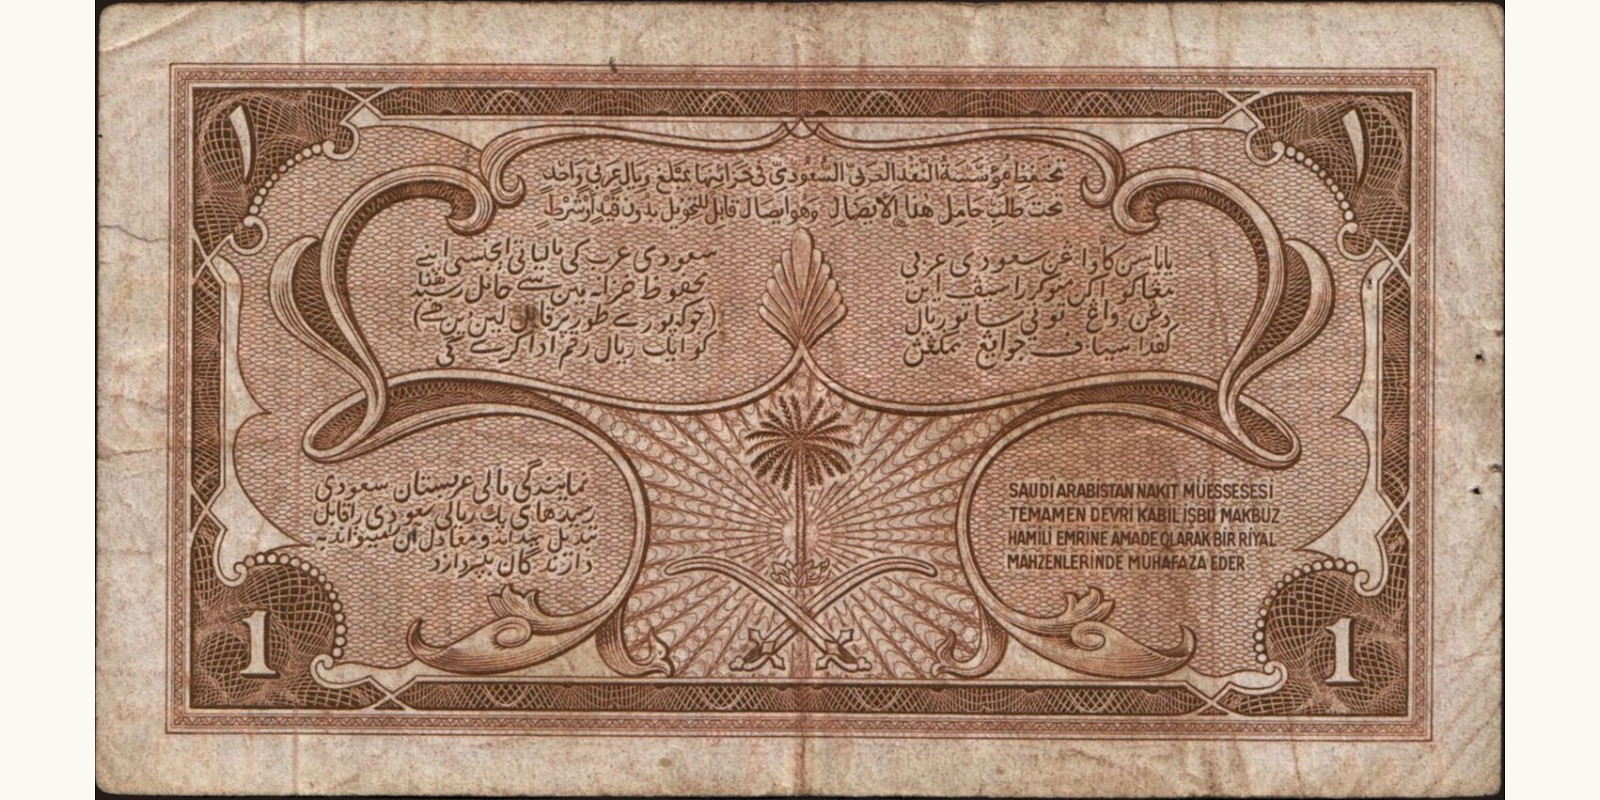 ١
١
تحتفظ مؤسسة النقد العربي السعودي في خزائنها بمبلغ ريال عربي واحد
تحت طلب حامل هذا الإيصال وهو إيصال قابل للتحويل بدون قيد أو شرط
سعودي عرب کی مالیاتی ایجنسی اپنے
محفوظ خزانہ میں سے حامل رسید ھذا
(جو کہ پورے طور پر قابل لین دین ھے)
کو ایک ریال رقم ادا کرے گی
سعودي عربي
نمایندگی مالی عربستان سعودی
رسید های یک ریالی سعودی را قابل
تبدیل میداند و معادل آن
دارندگان بپردازد
SAUDÎ ARABİSTAN NAKIT MÜESSESESİ
TEMAMEN DEVRİ KABİL İŞBU MAKBUZ
HAMİLİ EMRİNE AMADE OLARAK BİR RİYAL
MAHZENLERİNDE MUHAFAZA EDER
1
1